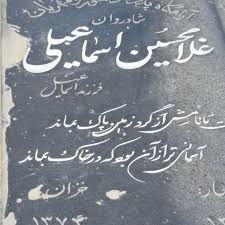 شادروان
غلامحسین اسماعیلی
فرزند اسماعیل
تا نامش از گرد زمین پاک بماند
آسمانی تر از آن بود که در خاک بماند
خزان
۱۳۷۴